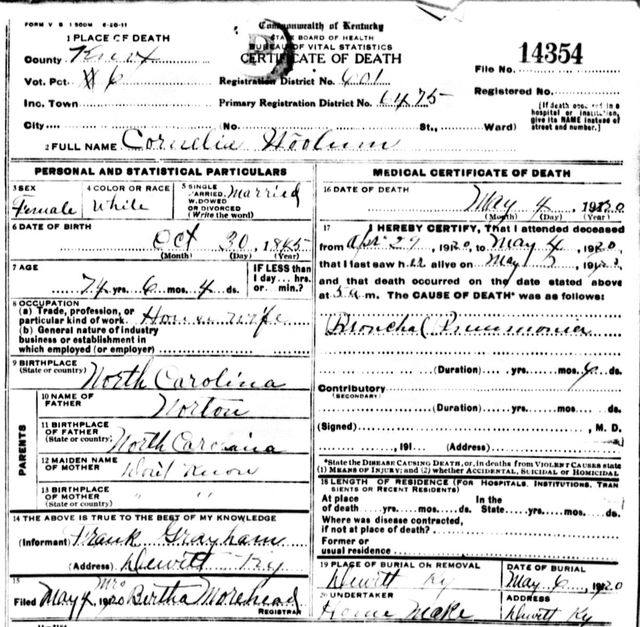 FORM V. S. 1 500M 6-26-11
Commonwealth of Kentucky
STATE BOARD OF HEALTH
BUREAU OF VITAL STATISTICS
CERTIFICATE OF DEATH
1 PLACE OF DEATH
County Knox
Vot. Pct # 6
Registration District No. 601
File No. 14354
Inc. Town
Primary Registration District No. 6475
Registered No.
City No. St., Ward)
[If death occurred in a hospital or institution, give its NAME instead of street and number.]
2 FULL NAME Cornelia Hoolum
PERSONAL AND STATISTICAL PARTICULARS
3 SEX
Female
4 COLOR OR RACE
White
5 SINGLE
MARRIED,
WIDOWED
OR DIVORCED
(Write the word)
Married
6 DATE OF BIRTH
Oct 30, 1845
(Month) (Day) (Year)
7 AGE
74 yrs. 6 mos. 4 ds.
IF LESS than
1 day... hrs.
or min.?
8 OCCUPATION
(a) Trade, profession, or
particular kind of work. House wife
(b) General nature of industry
business or establishment in
which employed (or employer)
9 BIRTHPLACE
(State or country) North Carolina
PARENTS
10 NAME OF
FATHER
Norton
11 BIRTHPLACE
OF FATHER
(State or country) North Carolina
12 MAIDEN NAME
OF MOTHER
Don't Know
13 BIRTHPLACE
OF MOTHER " "
(State or country)
14 THE ABOVE IS TRUE TO THE BEST OF MY KNOWLEDGE
(Informant) Frank Grayham
(Address) Dewitt Ky
15
Filed May 4, 1920 Mrs Bertha Morehead
REGISTRAR
MEDICAL CERTIFICATE OF DEATH
16 DATE OF DEATH
May 4 1920
(Month) (Day) (Year)
17 I HEREBY CERTIFY, That I attended deceased
from Apr 29, 1920, to May 4, 1920,
that I last saw her alive on May 3, 1920,
and that death occurred on the date stated above
at 5 a m. The CAUSE OF DEATH* was as follows:
Bronchal Pneumonia
(Duration) yrs. mos. 6 ds.
Contributory
(SECONDARY)
(Duration) yrs. mos. ds.
(Signed) , M. D.
, 191 (Address)
*State the DISEASE CAUSING DEATH, or, in deaths from VIOLENT CAUSES state
(1) MEANS OF INJURY; and (2) whether ACCIDENTAL, SUICIDAL or HOMICIDAL
18 LENGTH OF RESIDENCE (FOR HOSPITALS, INSTITUTIONS, TRAN
SIENTS OR RECENT RESIDENTS)
At place of death yrs. mos. ds. In the State yrs. mos. ds.
Where was disease contracted,
if not at place of death?
Former or
usual residence
19 PLACE OF BURIAL OR REMOVAL
Dewitt Ky
DATE OF BURIAL
May 6, 1920
20 UNDERTAKER
Home Make
ADDRESS
Dewitt Ky